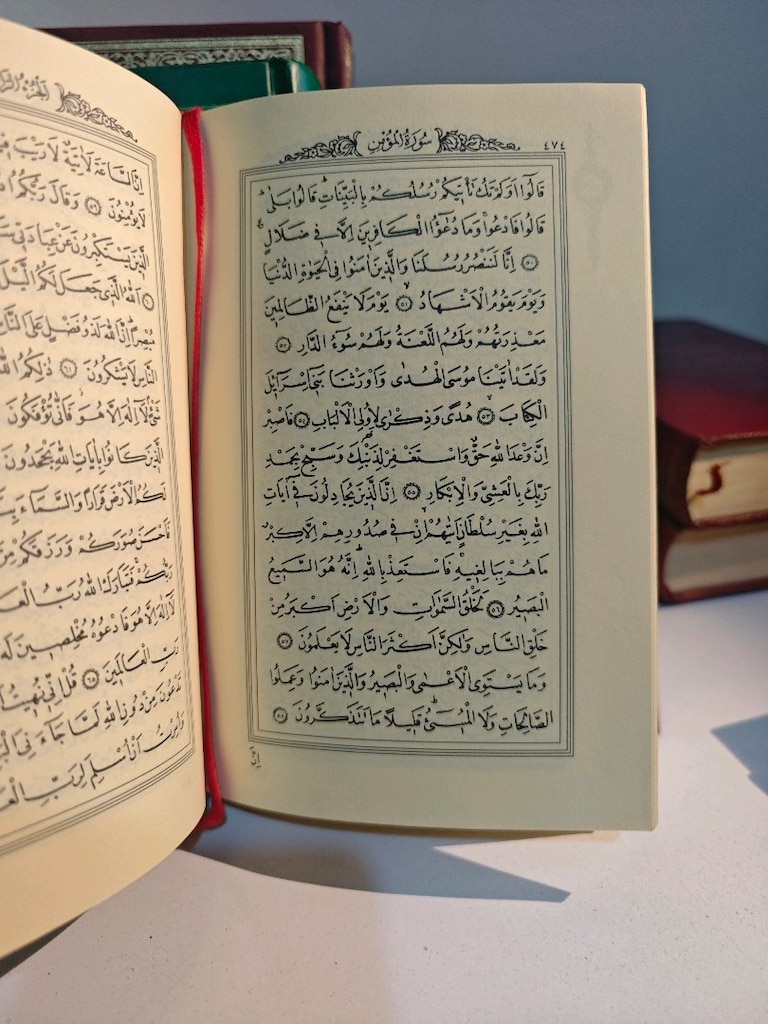 سُورَةُ الْمُؤْمِنِ ٤٧٤
قَالُٓوا اَوَلَمْ تَكُ تَأْتٖيكُمْ رُسُلُكُمْ بِالْبَيِّنَاتِؕ قَالُوا بَلٰىؕ
قَالُوا فَادْعُواۚ وَمَا دُعٰٓؤُا الْكَافِرٖينَ اِلَّا فٖى ضَلَالٍࣖ
﴿٥٠﴾ اِنَّا لَنَنْصُرُ رُسُلَنَا وَالَّذٖينَ اٰمَنُوا فِى الْحَيٰوةِ الدُّنْيَا
وَيَوْمَ يَقُومُ الْاَشْهَادُۙ ﴿٥١﴾ يَوْمَ لَا يَنْفَعُ الظَّالِمٖينَ
مَعْذِرَتُهُمْ وَلَهُمُ اللَّعْنَةُ وَلَهُمْ سُٓوءُ الدَّارِ ﴿٥٢﴾
وَلَقَدْ اٰتَيْنَا مُوسَى الْهُدٰى وَاَوْرَثْنَا بَنٖٓى اِسْرَٓائٖلَ
الْكِتَابَۙ ﴿٥٣﴾ هُدًى وَذِكْرٰى لِاُولِى الْاَلْبَابِ ﴿٥٤﴾ فَاصْبِرْ
اِنَّ وَعْدَ اللّٰهِ حَقٌّ وَاسْتَغْفِرْ لِذَنْبِكَ وَسَبِّحْ بِحَمْدِ
رَبِّكَ بِالْعَشِىِّ وَالْاِبْكَارِ ﴿٥٥﴾ اِنَّ الَّذٖينَ يُجَادِلُونَ فٖٓى اٰيَاتِ
اللّٰهِ بِغَيْرِ سُلْطَانٍ اَتٰيهُمْۙ اِنْ فٖى صُدُورِهِمْ اِلَّا كِبْرٌ
مَا هُمْ بِبَالِغٖيهِۚ فَاسْتَعِذْ بِاللّٰهِؕ اِنَّهُ هُوَ السَّمٖيعُ
الْبَصٖيرُ ﴿٥٦﴾ لَخَلْقُ السَّمٰوَاتِ وَالْاَرْضِ اَكْبَرُ مِنْ
خَلْقِ النَّاسِ وَلٰكِنَّ اَكْثَرَ النَّاسِ لَا يَعْلَمُونَ ﴿٥٧﴾
وَمَا يَسْتَوِى الْاَعْمٰى وَالْبَصٖيرُ وَالَّذٖينَ اٰمَنُوا وَعَمِلُوا
الصَّالِحَاتِ وَلَا الْمُسٖٓىءُؕ قَلٖيلًا مَا تَتَذَكَّرُونَ ﴿٥٨﴾
اِنَّ
اَلْجُزْءُ
اِنَّ السَّاعَةَ لَاٰتِيَةٌ لَا رَيْبَ
لَا يُؤْمِنُونَ ﴿٥٩﴾ وَقَالَ رَبُّكُمُ
الَّذٖينَ يَسْتَكْبِرُونَ عَنْ عِبَادَتٖى
﴿٦٠﴾ اَللّٰهُ الَّذٖى جَعَلَ لَكُمُ الَّيْلَ
مُبْصِرًاؕ اِنَّ اللّٰهَ لَذُو فَضْلٍ عَلَى
النَّاسِ لَا يَشْكُرُونَ ﴿٦١﴾ ذٰلِكُمُ
شَىْءٍۢ لَٓا اِلٰهَ اِلَّا هُوَؗ فَاَنّٰى تُؤْفَكُونَ
الَّذٖينَ كَانُوا بِاٰيَاتِ اللّٰهِ يَجْحَدُونَ
لَكُمُ الْاَرْضَ قَرَارًا وَالسَّمَٓاءَ
فَاَحْسَنَ صُوَرَكُمْ وَرَزَقَكُمْ
رَبُّكُمْۚ فَتَبَارَكَ اللّٰهُ رَبُّ
لَٓا اِلٰهَ اِلَّا هُوَ فَادْعُوهُ مُخْلِصٖينَ
رَبِّ الْعَالَمٖينَ ﴿٦٥﴾ قُلْ اِنّٖى نُهٖيتُ
تَدْعُونَ مِنْ دُونِ اللّٰهِ لَمَّا جَٓاءَنِىَ
وَاُمِرْتُ اَنْ اُسْلِمَ لِرَبِّ